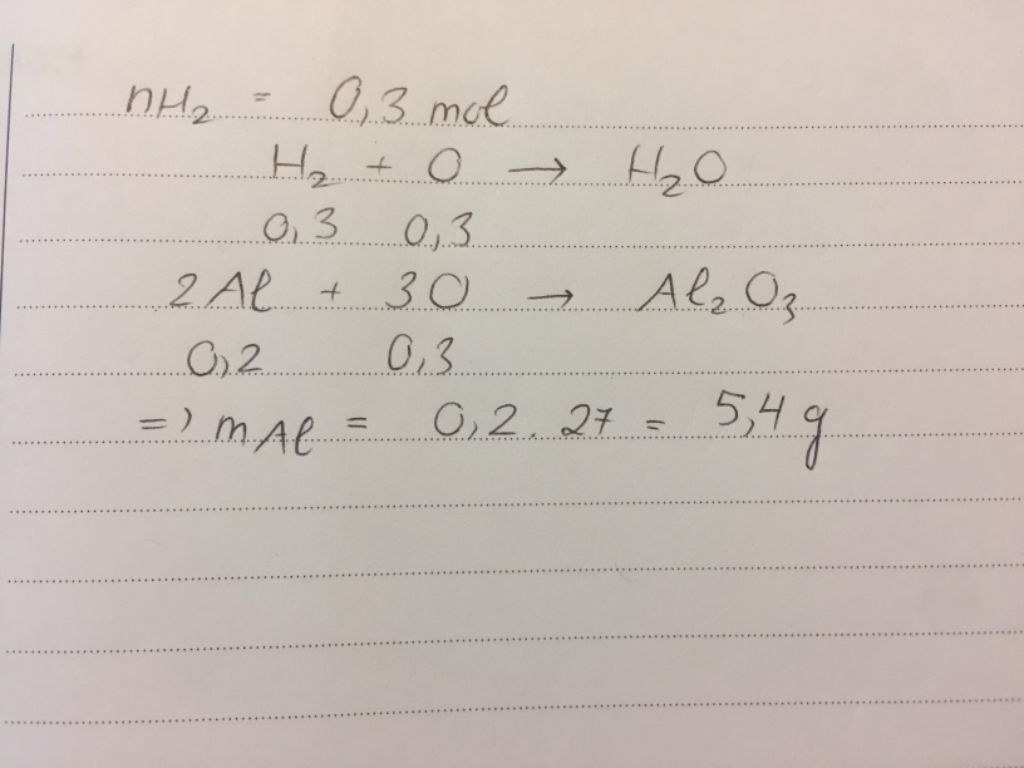 nH₂ = 0,3 mol
H₂ + O → H₂O
0,3 0,3
2Al + 3O → Al₂O₃
0,2 0,3
=) mAl = 0,2 . 27 = 5,4 g